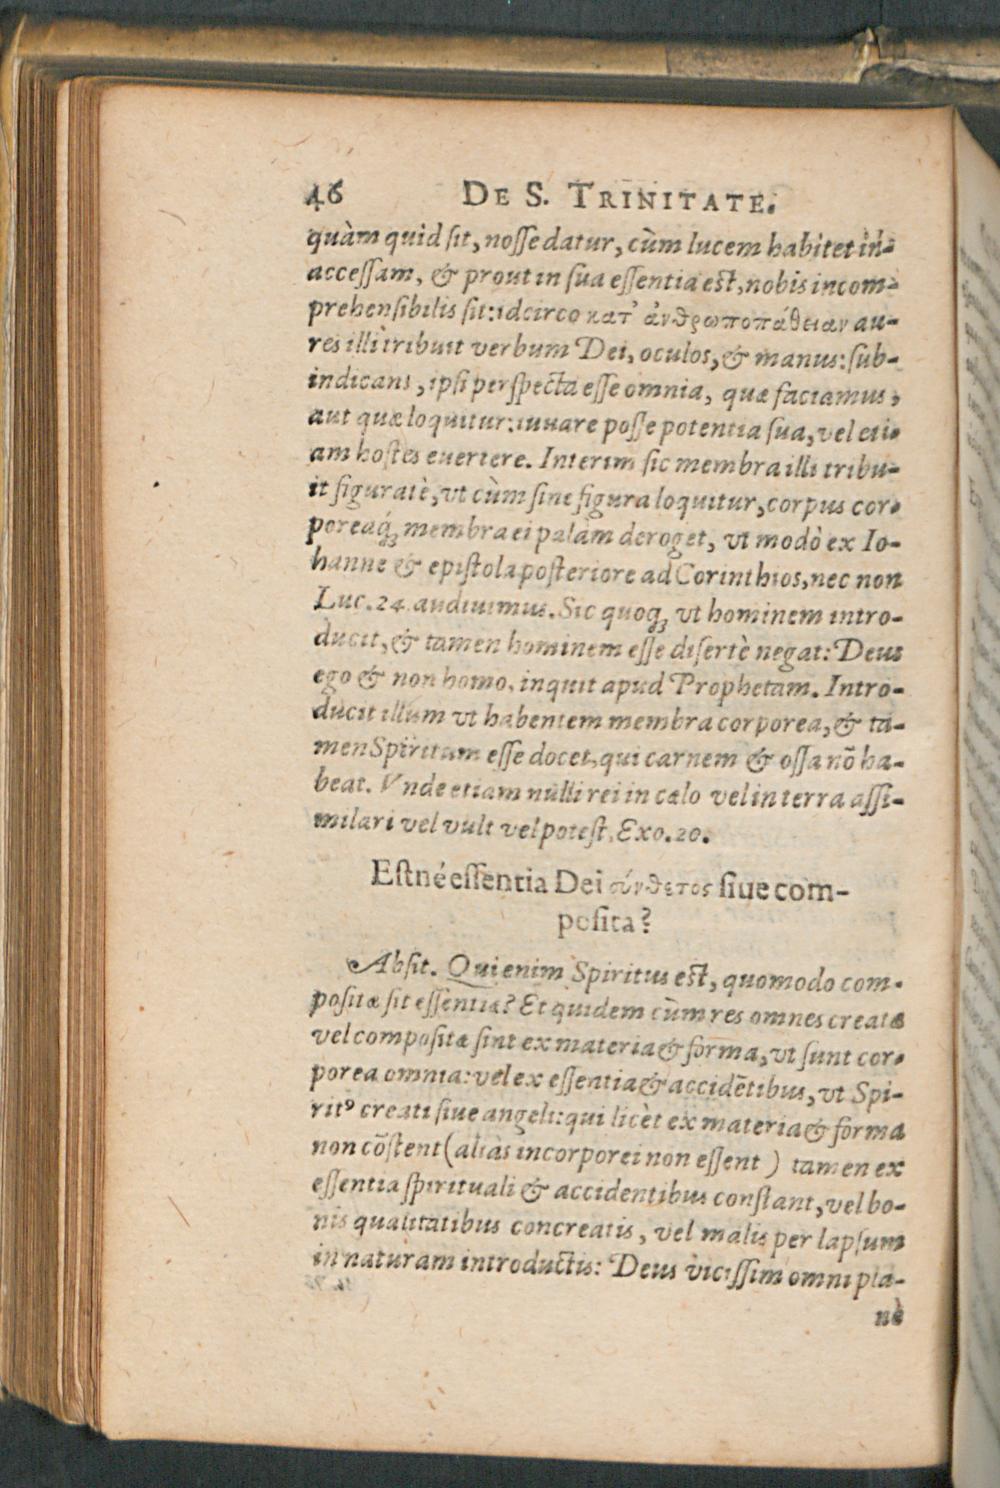 46 DE S. TRINITATE.
quàm quid sit, nosse datur, cùm lucem habitet in-
accessam, & prout in sua essentia est, nobis incom-
prehensibilis sit: idcirco κατ᾽ ἀνθρωποπάθειαν au-
res illi tribuit verbum Dei, oculos, & manus: sub-
indicans, ipsi perspecta esse omnia, quæ faciamus,
aut quæ loquitur: iuuare posse potentia sua, vel eti-
am hostes euertere. Interim sic membra illi tribu-
it figuratè, vt cùm sine figura loquitur, corpus cor-
poreaq́ꝫ membra ei palàm deroget, vt modò ex Io-
hanne & epistola posteriore ad Corinthios, nec non
Luc. 24 audiuimus. Sic quoqꝫ vt hominem intro-
ducit, & tamen hominem esse disertè negat: Deus
ego & non homo, inquit apud Prophetam. Intro-
ducit illum vt habentem membra corporea, & ta-
men Spiritum esse docet, qui carnem & ossa nō ha-
beat. Vnde etiam nulli rei in cælo vel in terra assi-
milari vel vult vel potest, Exo. 20.
Estné essentia Dei σύνθετος siue com-
posita?
Absit. Qui enim Spiritus est, quomodo com-
positæ sit essentiæ? Et quidem cùm res omnes creatæ
vel compositæ sint ex materia & forma, vt sunt cor-
porea omnia: vel ex essentia & accidētibus, vt Spi-
ritꝰ creati siue angeli: qui licèt ex materia & forma
non cōstent (aliàs incorporei non essent) tamen ex
essentia spirituali & accidentibus constant, vel bo-
nis qualitatibus concreatis, vel malis per lapsum
in naturam introductis: Deus vicissim omni pla-
nè